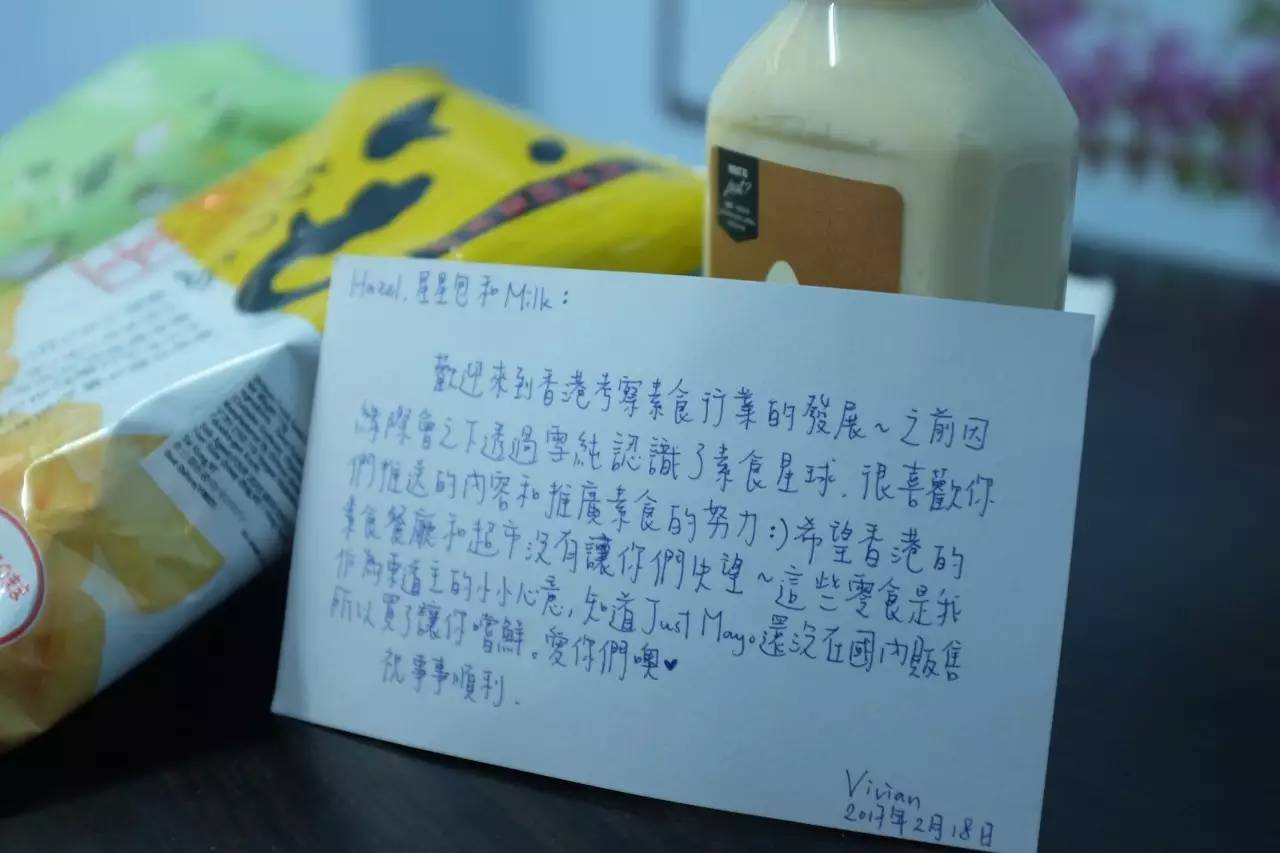 Hazel, 星星包 和 Milk：
歡迎來到香港考察素食行業的發展～之前因
緣際會之下透過雪純認識了素食星球．很喜歡你
們推送的內容和推廣素食的努力:)希望香港的
素食餐廳和超市沒有讓你們失望～這些零食是我
作為東道主的小小心意，知道Just Mayo還沒在國內販售
所以買了讓你嚐鮮。愛你們噢♥
祝事事順利．
Vivian
2017年2月18日